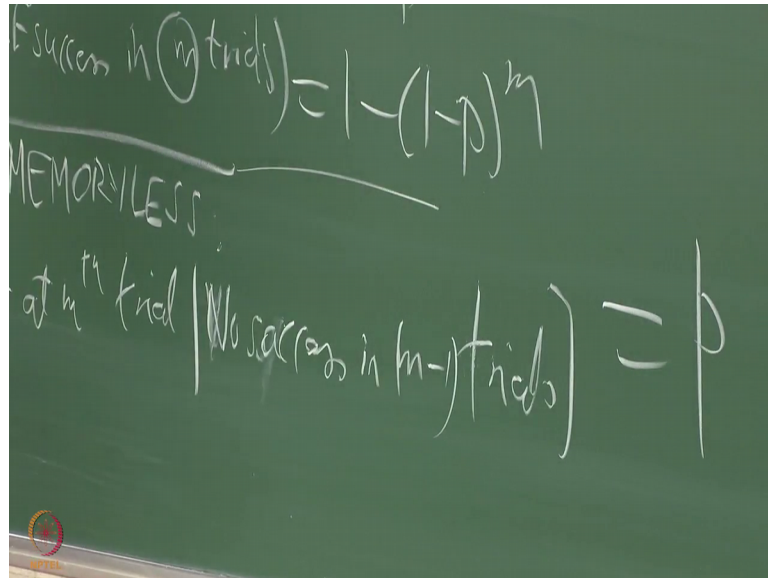 success in m trials) = 1-(1-p)^m
MEMORYLESS:
at m^th trial | No success in (m-1) trials) = p
NPTEL